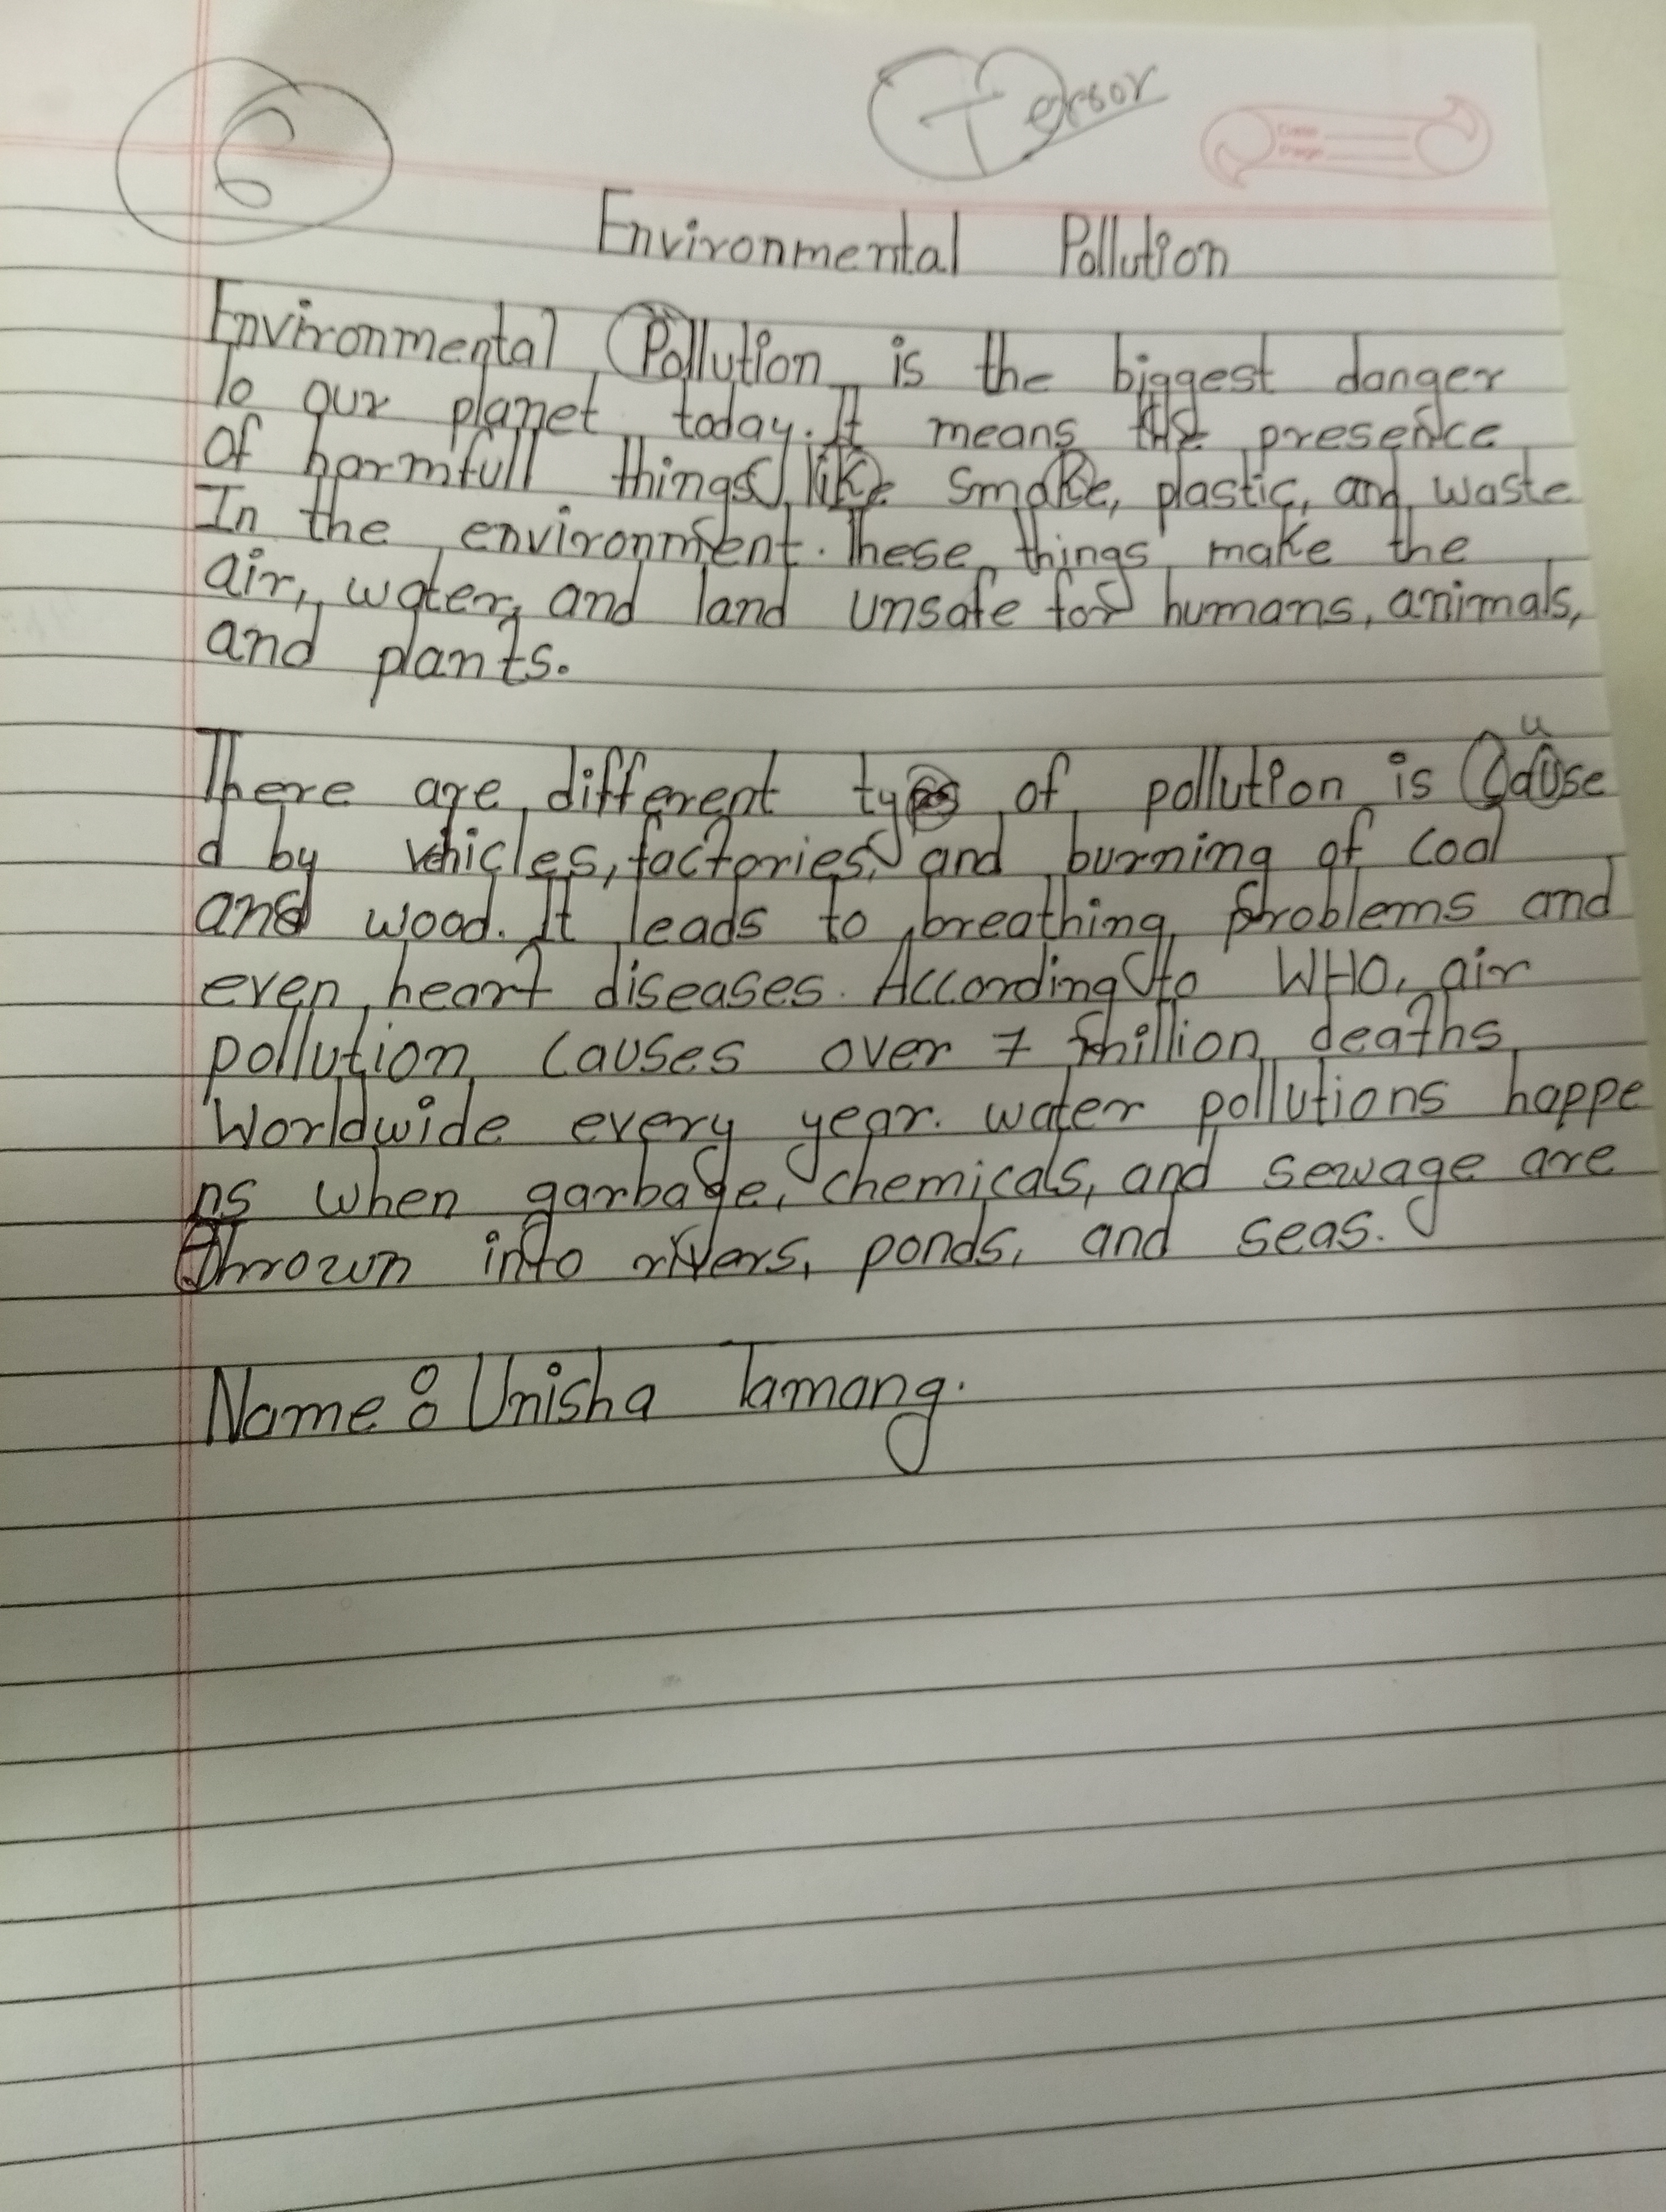 6
Tersor
Environmental Pollution
Environmental Pollution is the biggest danger
To our planet today. It means the presence
Of harmfull things like smoke, plastic, and waste
In the environment. These things make the
air, water, and land unsafe for humans, animals,
and plants.
There are different types of pollution is Cause
d by vehicles, factories, and burning of coal
and wood. It leads to breathing problems and
even heart diseases. According to WHO, air
pollution causes over 7 million deaths
Worldwide every year. water pollutions happe
ns when garbage, chemicals, and sewage are
Thrown into rivers, ponds, and seas.
Name : Unisha Tamang.